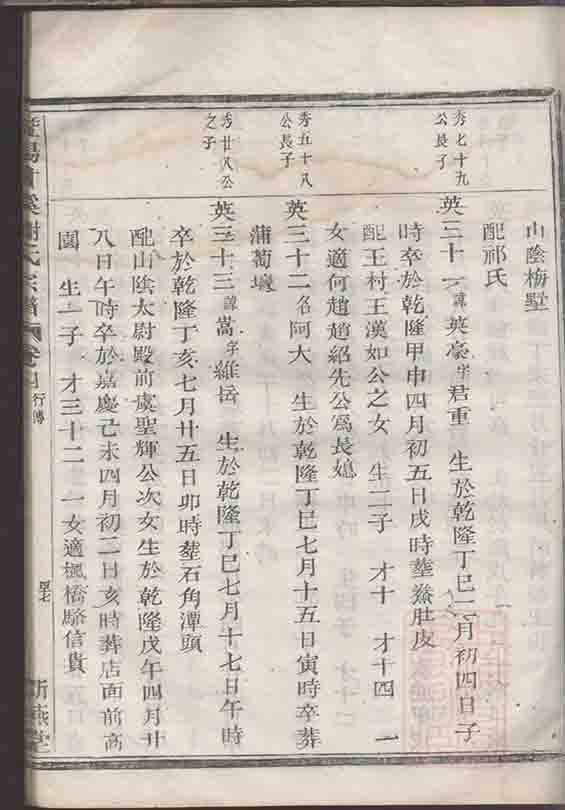 山陰梅墅
配祁氏
秀七十九
公長子
英三十一諱英豪字君重 生於乾隆丁巳二月初四日子
時卒於乾隆甲申四月初五日戌時塟鯗肚皮
配王村王漢如公之女 生二子 才十 才十四 一
女適何趙趙紹先公爲長媳
秀五十八
公長子
英三十二名阿大 生於乾隆丁巳七月十五日寅時卒葬
蒲萄塽
秀廿八公
之子
英三十三諱嵩字維岳 生於乾隆丁巳七月十七日午時
卒於乾隆丁亥七月廿五日卯時塟石角潭頭
配山陰太尉殿前虞聖輝公次女生於乾隆戊午四月廿
八日午時卒於嘉慶己未四月初二日亥時葬店面前高
園 生一子 才三十二 一女適楓橋駱信貴
謝氏宗譜 行傳